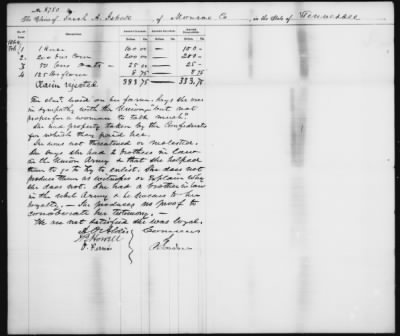 No 8750
The Claim of Sarah A. of Monroe Co in the State of Tennessee
1864
Feb
1 1 Horse 100.00 100 -
2 200 bus Corn 200.00 200 -
3 50 bus Oats 25.00 25 -
4 125 lbs flour 8.75 8.75
333.75 333.75
Claim rejected
The clmt. lived on her farm. Says she was
in sympathy with the Union "but not
proper for a woman to talk much"
She had property taken by the Confederates
for which they paid her.
She was not threatened or molested.
She says she had 2 brothers in law
in the Union Army & that she helped
them to go to try to enlist. She does not
produce them as witnesses or explain why
she does not. She had a brother in law
in the rebel Army & he swears to her
loyalty. — She produces no proof to
corroborate her testimony. —
We are not satisfied she was loyal.
A. O. Aldis
J. B. Howell
O. Ferriss